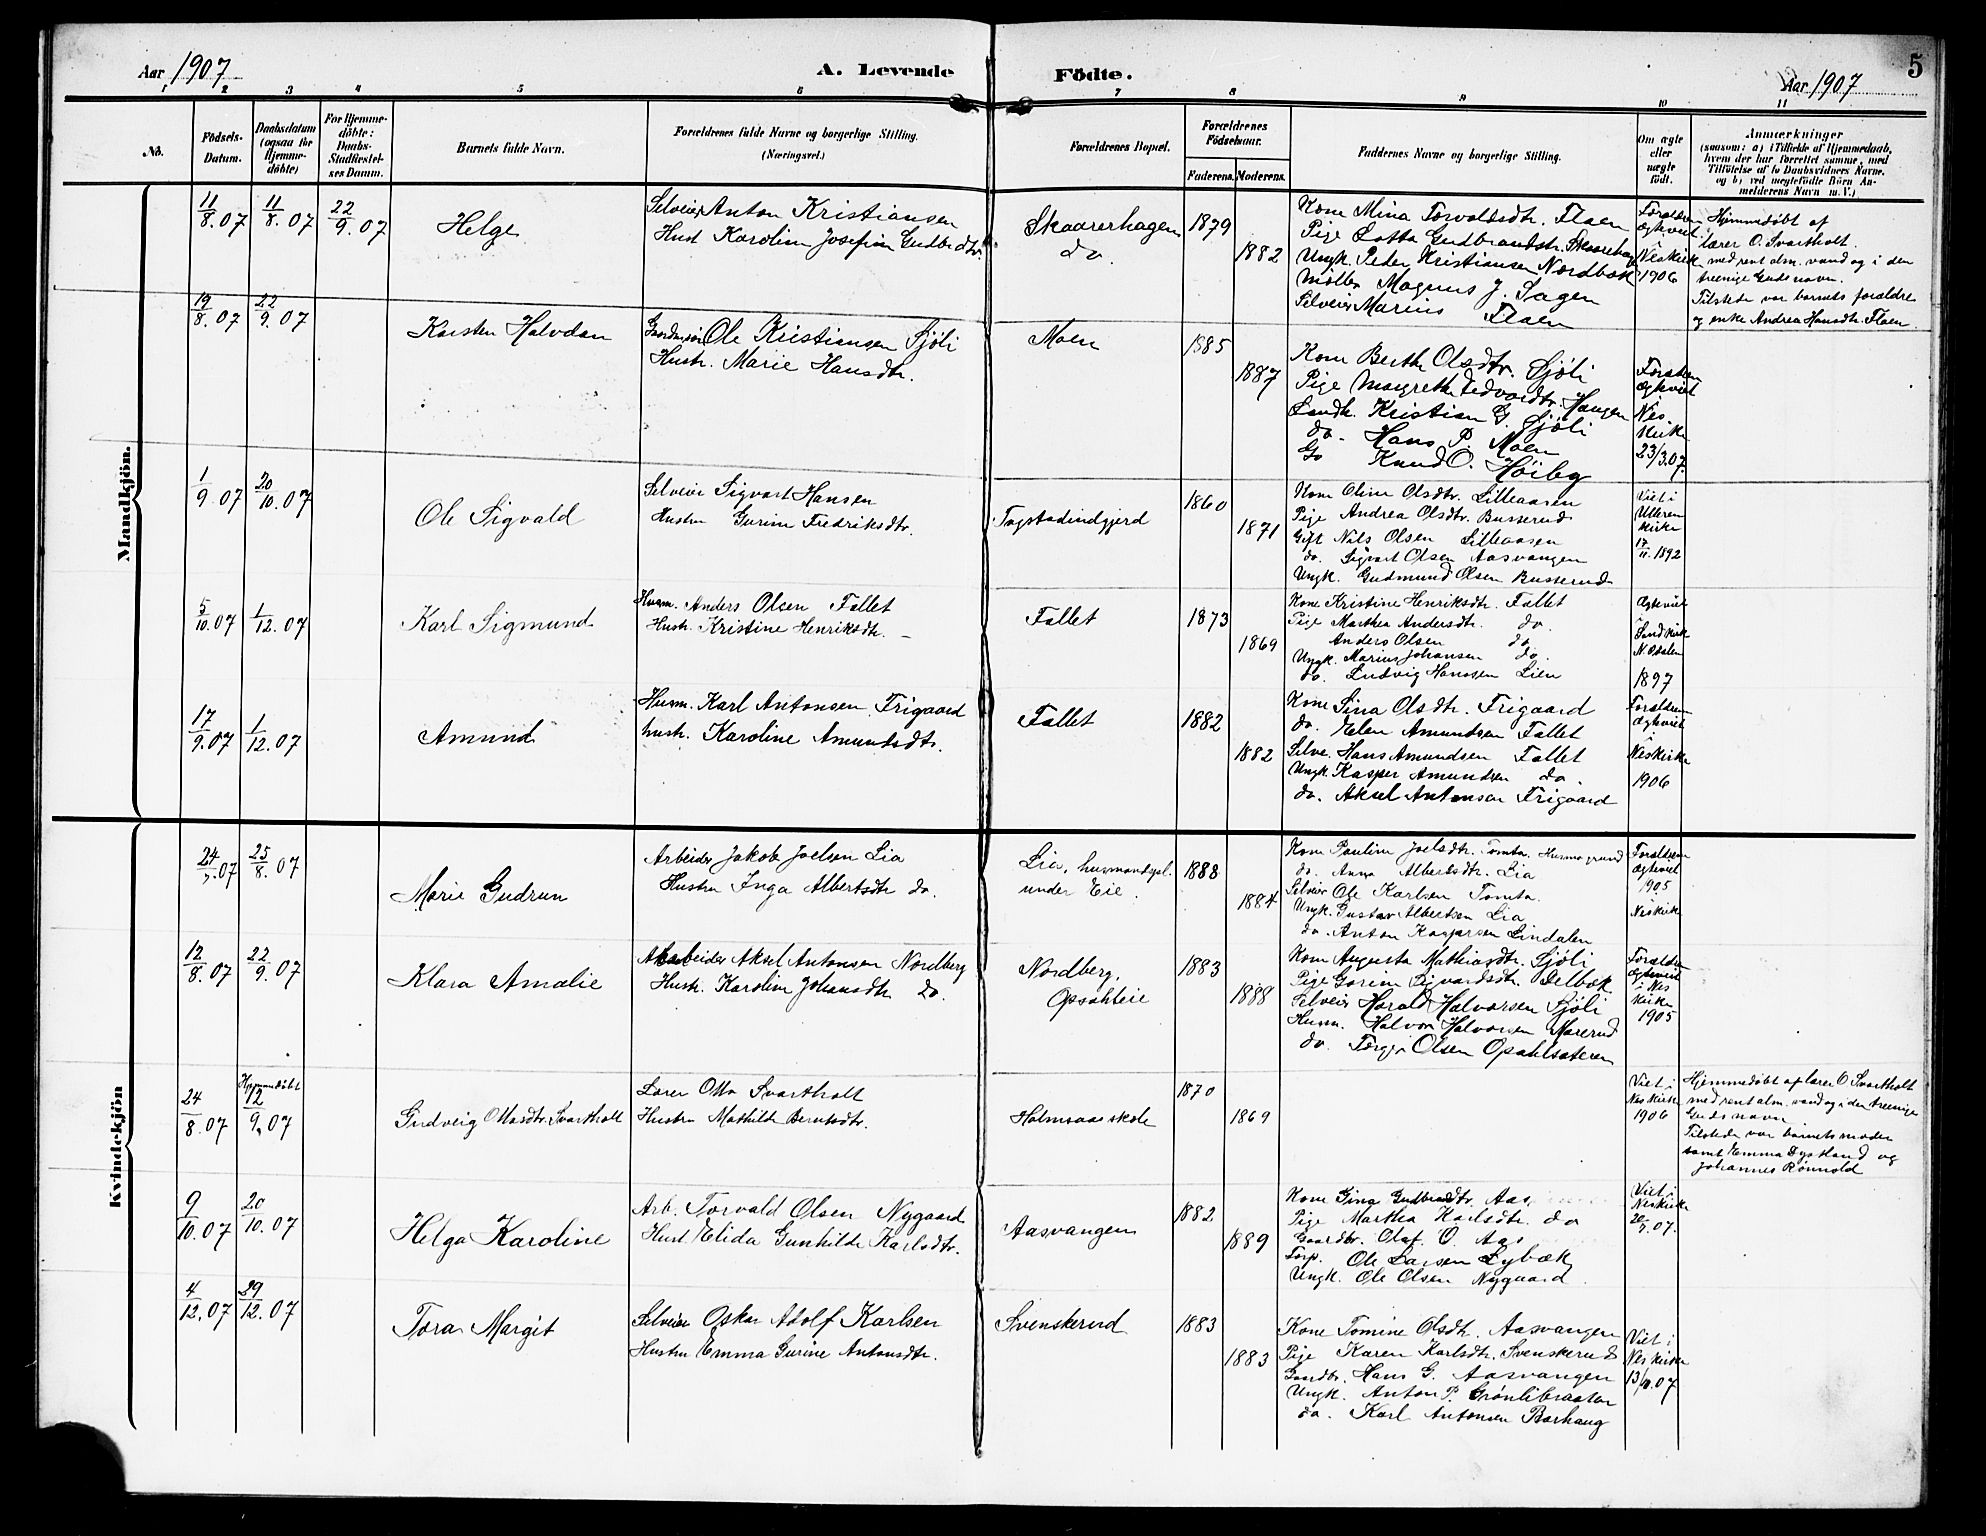 Aar 1907
A. Levende
Födte.
Aar 1907
5
1 2 3 4 5 6 7 8 9 10 11
No.
Födsels-
Datum.
Daabsdatum
(ogsaa for
Hjemme-
döbte)
For Hjemme-
döbte:
Daabs-
Stadfæstel-
ses Datum.
Barnets fulde Navn.
Forældrenes fulde Navne og borgerlige Stilling.
(Næringsvei.)
Forældrenes Bopæl.
Forældrenes
Födselsaar.
Faderens. Moderens.
Faddernes Navne og borgerlige Stilling.
Om ægte
eller
uægte
födt.
Anmærkninger
(saasom: a) i Tilfælde af Hjemmedaab,
hvem der har forrettet samme, med
Tilföielse af to Daabsvidners Navne.
og b) ved uegtefödte Börn An-
melderens Navn m. V.)
Mandkjön.
11/8.07 11/8.07 22/9.07
Helge
Selveier Anton Kristiansen
Hust Karolin Josefine Gudbrdtr
Skaarerhagen
do.
1879
1882
Kone Mina Torvaldsdtr. Flaen
Pige Lotta Gudbrandsdtr. Skaarerhag
Ungk. Peder Kristiansen Nordbæk
Møller Magnus J. Sagen
Selveier Marius Flaen
Forældren
ægteviet
i
Neskirk
1906
Hjemmedøbt af
lærer O. Svartholt.
med rent alm. vand og i den
treenige Guds navn.
Tilstede var barnets forældre
og enke Andrea Hansdtr. Flaen
19/8.07 22/9.07
Karsten Halvdan
Ole Kristiansen Sjöli
Hustr. Marie Hansdtr.
Moen
1885
1887
Kone Berthe Olsdtr. Sjöli
Pige Margrethe Edvardsdtr. Haugen
Kristian G. Sjöli
do. Hans P. Moen
Knud O. Höiby
Forældren
ægteviet
i
Nes
kirke
23/3.07.
1/9.07 20/10.07
Ole Sigvald
Selveier Sigvart Hansen
Hustru Gurine Fredriksdtr.
Togstadindgjerd
1860
1871
Kone Oline Olsdtr. Lilleaasen
Pige Andrea Olsdtr. Busserud
Gift Nils Olsen Lilleaasen
do. Sigvart Olsen Aasvangen
Ungk. Gudmund Olsen Busserud
Viet i
Ulleren
kirke
17/11. 1892
5/10.07 1/12.07
Karl Sigmund
Husm. Anders Olsen Fallet
Hustr. Kristine Henriksdtr. –
Fallet
1873
1869
Kone Kristine Henriksdtr. Fallet
Pige Marthea Andersdtr. do.
Anders Olsen do
Ungk. Marius Johansen do.
do. Ludvig Hanssen Lien
Ægteviet
i
Sandkirk
N. Odalen
1897
17/9.07 1/12.07
Amund
Husm. Karl Antonsen Frigaard
hustr. Karoline Amundsdtr.
Fallet
1882
1882
Kone Sina Olsdtr. Frigaard
do. Elen Amundsen Fallet
Selve. Hans Amundsen Fallet
Ungk. Kasper Amundsen do.
do. Aksel Antonsen Frigaard
Forældren
ægteviet
i
Neskirke
1906
Kvindekjön
24/7.07 25/8.07
Marie Gudrun
Arbeider Jakob Joelsen Lia
Hustru Inga Albertsdtr do.
Lia, husmandspl.
under Eie.
1888
1884
Kone Pauline Joelsdtr. Tomta
do. Anna Albertsdtr. Lia
Selveier Ole Karlsen Tomta.
Ungk. Gustav Albertsen Lia
do. Anton Kaspersen Lindalen
Forældren
ægteviet
1905
i
Neskirk
12/8.07 22/9.07
Klara Amalie
Arbeider Aksel Antonsen Nordberg
Hustr. Karoline Johansdtr do.
Nordberg,
Opsahleie
1883
1888
Kone Augusta Mathiasdtr. Sjöli
Pige Gorine Sigvardsdtr. Delbæk
Selveier Harald Halvorsen Sjöli
Husm. Halvor Halvorsen Marerud
do. Torger Olsen Opahlsæteren
Forældren
ægteviet
i Nes
kirke
1905
24/8.07 Hjemmedøbt 12/9.07
Gudveig Ottosdtr. Svartholt
Lærer Otto Svartholt
Hustru Mathilde Berntsdtr.
Holmsaaeskole
1870
1869
Viet i
Neskirke
1906
Hjemmedøbt af lærer O Svartholt
med rent alm. vand og i den treenige
Guds navn
Tilstede var barnets moder
samt Emma Dystland og
Johannes Rønnold
9/10.07 20/10.07
Helga Karoline
Arb. Torvald Olsen Nygaard
Hust Elida Gunhilde Karlsdtr.
Aasvangen
1882
1889
Kone Gina Gudbrandsdtr. Aas
Pige Martha Karlsdtr. do
Gaardbr. Olaf O. Aas
Torp. Ole Larsen Lybæk
Ungk. Ole Olsen Nygaard.
Viet i
Neskirke
20/7.07.
4/12.07 29/12.07
Tora Margit
Selveier Oskar Adolf Karlsen
Hustru Emma Gurine Antonsdtr.
Svenskerud
1883
1883
Kone Tomine Olsdtr. Aasvangen
Pige Karen Karlsdtr. Svenskerud
Gaardbr. Hans G. Aasvangen
Ungk. Anton P. Grönlibraaten
do. Karl Antonsen Borhaug
Viet i
Neskirke